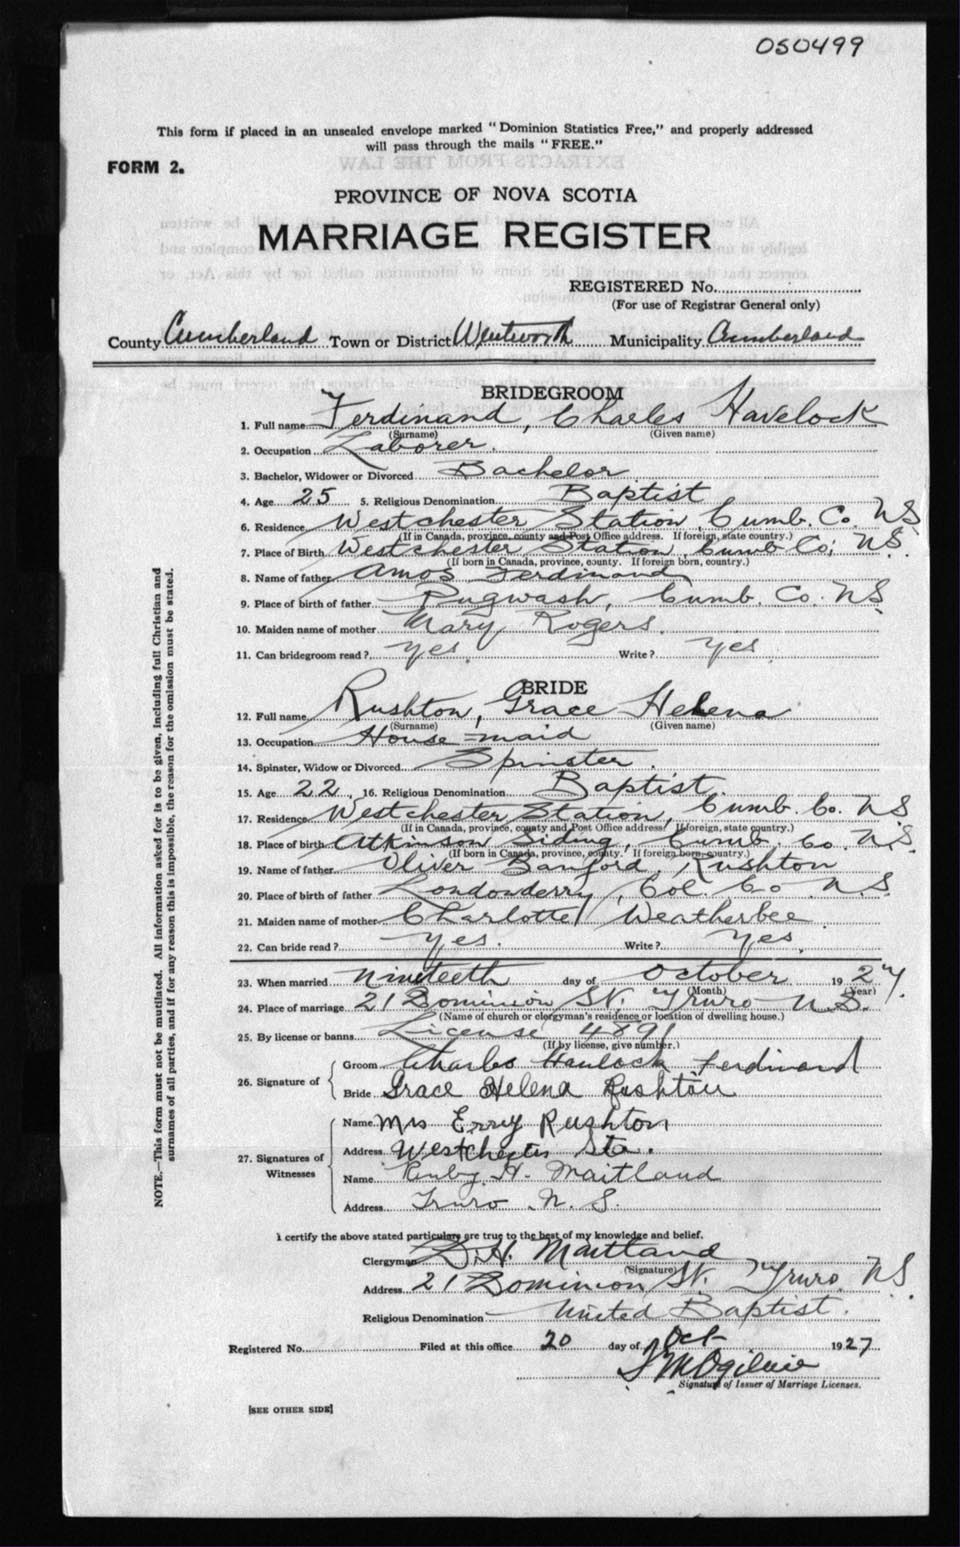 050499
This form if placed in an unsealed envelope marked "Dominion Statistics Free," and properly addressed
will pass through the mails "FREE."
FORM 2.
PROVINCE OF NOVA SCOTIA
MARRIAGE REGISTER
REGISTERED No.
(For use of Registrar General only)
County Cumberland Town or District Wentworth Municipality Cumberland
BRIDEGROOM
1. Full name Ferdinand, Charles Havelock
(Surname) (Given name)
2. Occupation Laborer.
3. Bachelor, Widower or Divorced Bachelor
4. Age 25 5. Religious Denomination Baptist
6. Residence Westchester Station, Cumb. Co. NS
(If in Canada, province, county and Post Office address. If foreign, state country.)
7. Place of Birth Westchester Station, Cumb Co, N.S.
(If born in Canada, province, county. If foreign born, country.)
8. Name of father Amos Ferdinand
9. Place of birth of father Pugwash, Cumb. Co. NS
10. Maiden name of mother Mary Rogers.
11. Can bridegroom read? yes. Write? yes
BRIDE
12. Full name Rushton, Grace Helena
(Surname) (Given name)
13. Occupation House=maid
14. Spinster, Widow or Divorced Spinster.
15. Age 22, 16. Religious Denomination Baptist.
17. Residence Westchester Station, Cumb. Co. N.S.
(If in Canada, province, county and Post Office address. If foreign, state country.)
18. Place of birth Atkinson Siding, Cumb, Co. N.S.
(If born in Canada, province, county. If foreign born, country.)
19. Name of father Oliver Sanford, Rushton
20. Place of birth of father Londonderry, Col. Co N.S.
21. Maiden name of mother Charlotte Weatherbee
22. Can bride read? yes. Write? Yes.
23. When married Nineteeth day of October 1927.
(Month) (Year)
24. Place of marriage 21 Dominion St. Truro N.S.
(Name of church or clergyman's residence or location of dwelling house.)
25. By license or banns License 4891
(If by license, give number.)
26. Signature of
Groom Charles Havlock Ferdinand
Bride Grace Helena Rushton
27. Signatures of Witnesses
Name Mrs Erry Rushton
Address Westchester Sta.
Name Ruby H. Maitland
Address Truro N. S.
I certify the above stated particulars are true to the best of my knowledge and belief.
Clergyman D. H. Maitland
(Signature)
Address 21 Dominion St. Truro NS.
Religious Denomination United Baptist.
Registered No. Filed at this office 20 day of Oct 1927
S M Ogilvie
Signature of Issuer of Marriage Licenses.
[SEE OTHER SIDE]
NOTE.—This form must not be mutilated. All information asked for is to be given, including full Christian and
surnames of all parties, and if for any reason this is impossible, the reason for the omission must be stated.